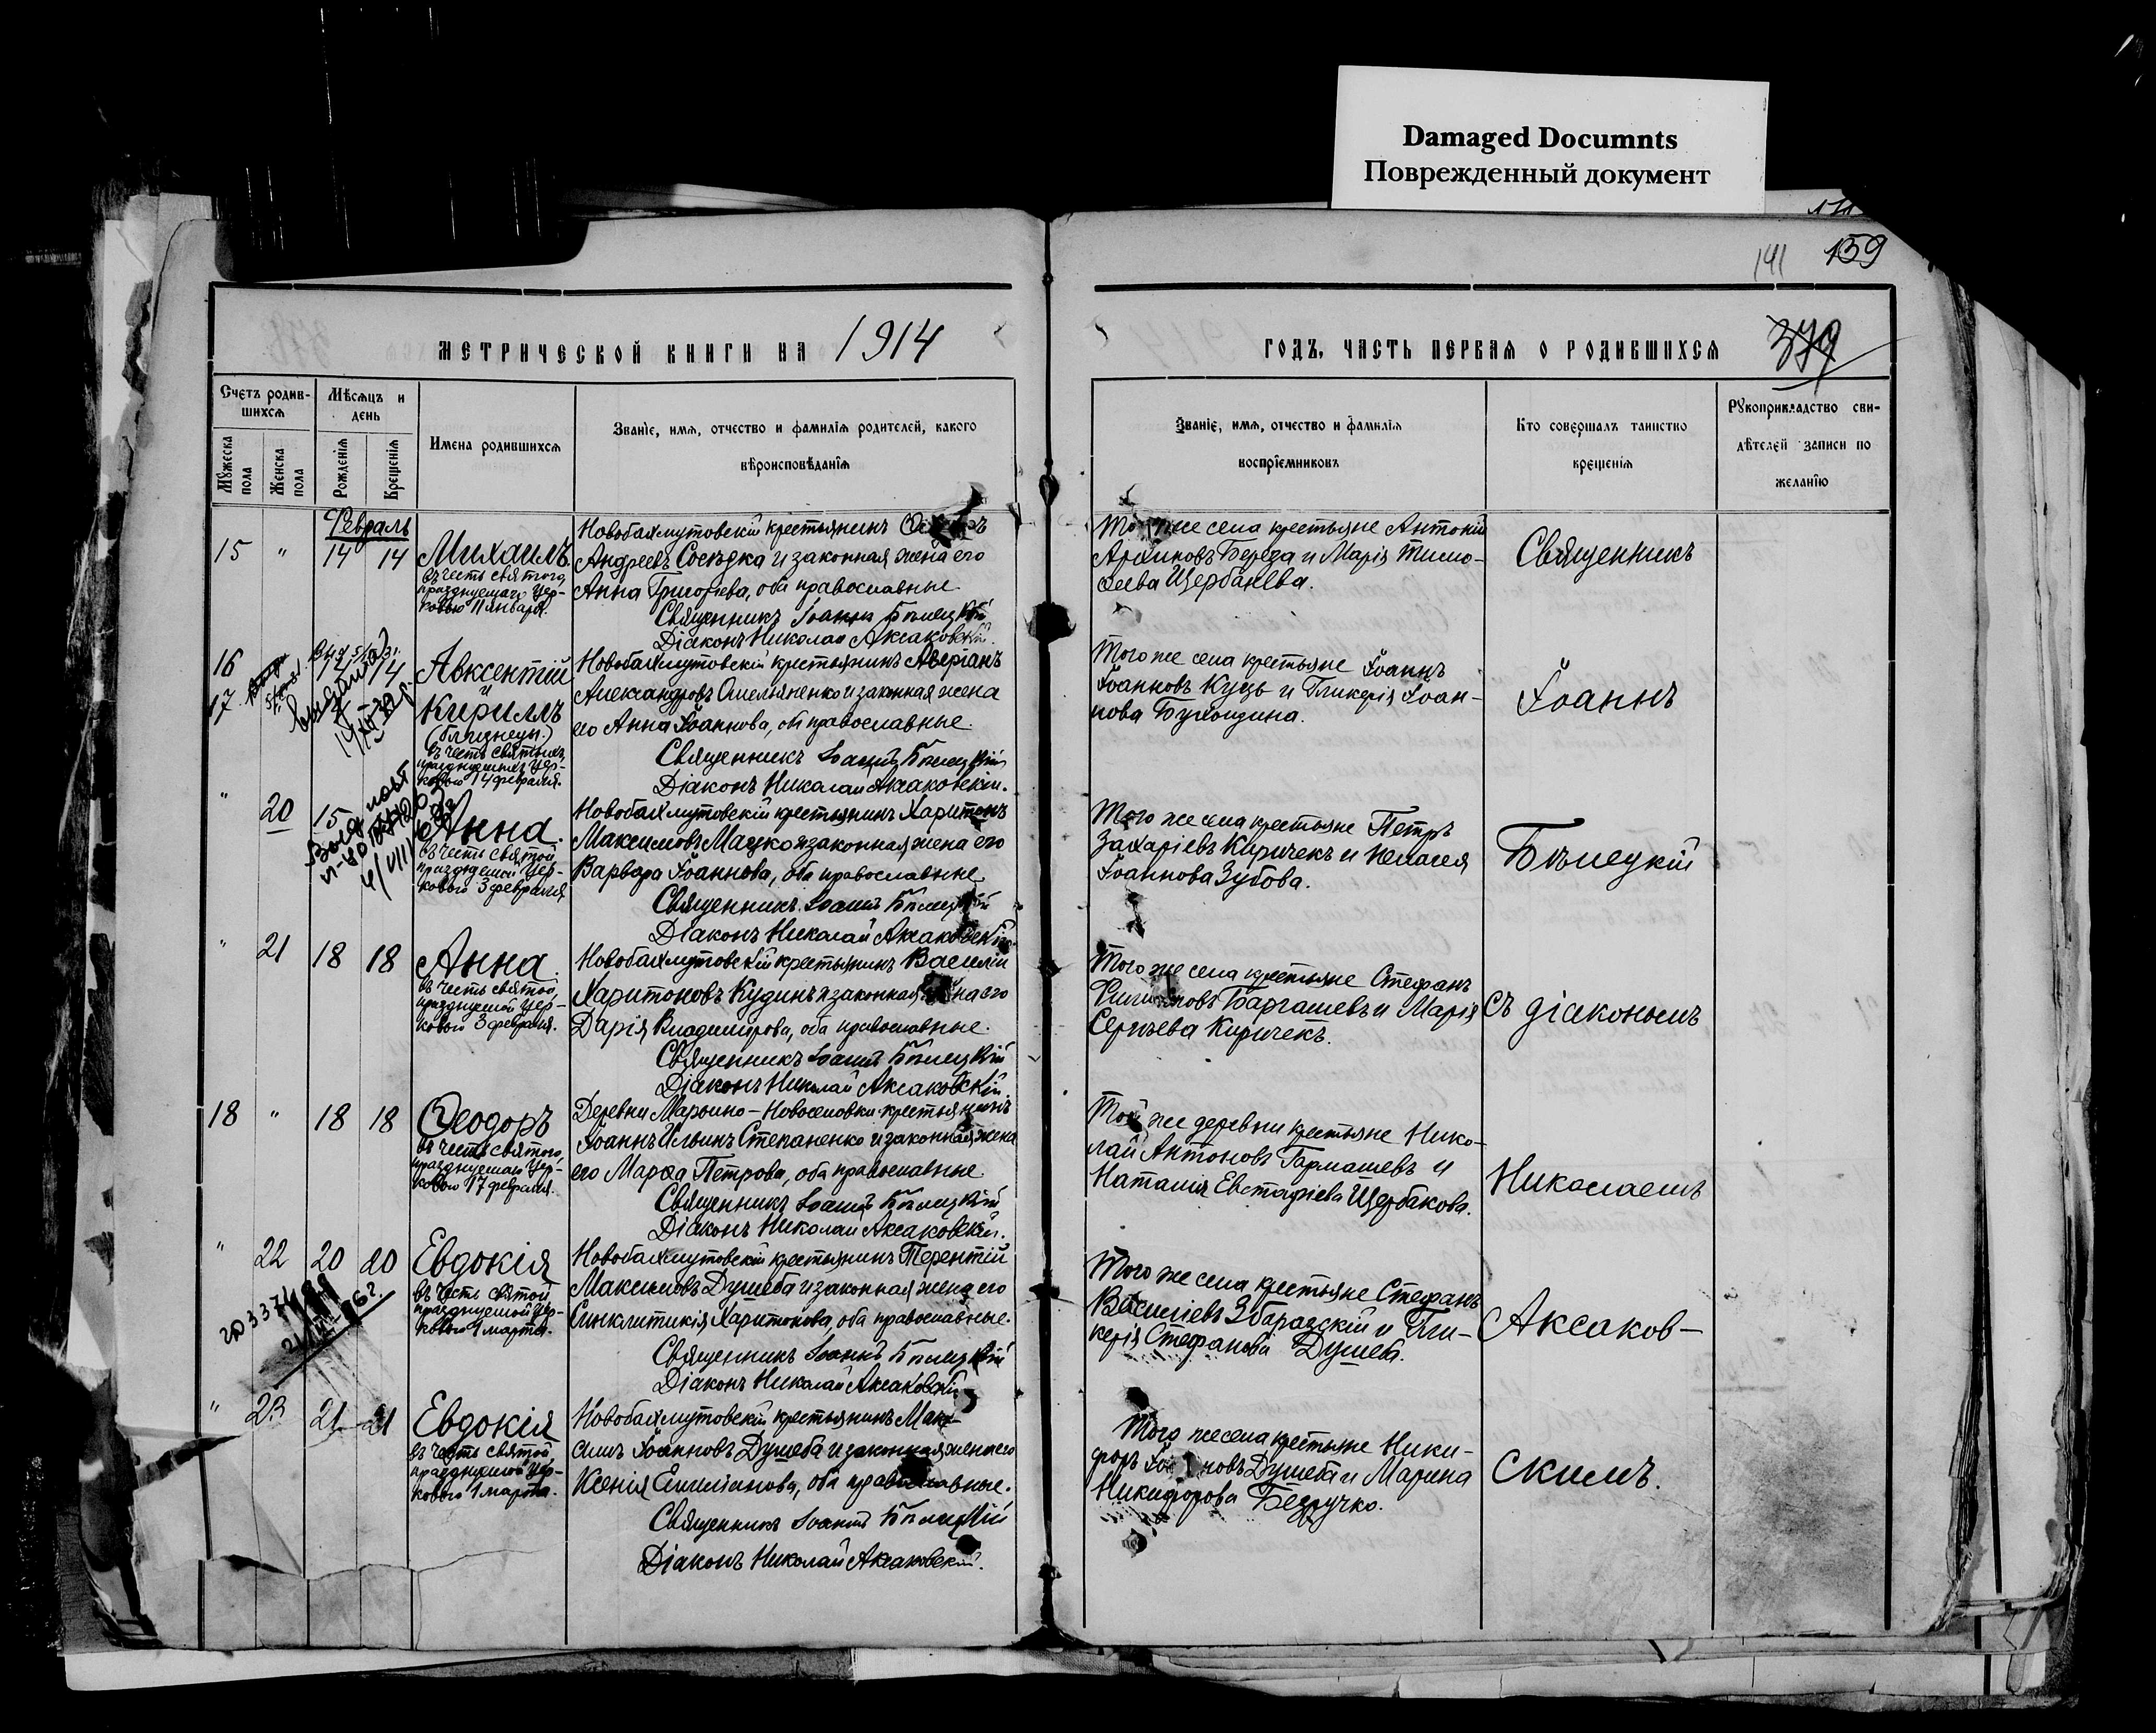 Damaged Documnts
Поврежденный документ
141 159
МЕТРИЧЕСКОЙ КНИГИ НА 1914
Счетъ родив-
шихся
Мѣсяцъ и
день
Мужеска
пола
Женска
пола
Рожденія
Крещенія
Имена родившихся
Званіе, имя, отчество и фамилія родителей, какого
вѣроисповѣданія
Февраль
15 " 14 14 Михаилъ
въ честь святого,
празднуемаго Цер-
ковью 11 января.
Новобахмутовскій крестьянинъ
Андреевъ Сосѣдка и законная жена его
Анна Григорьева, оба православные.
Священникъ Іоаннъ Бѣлецкій
Діаконъ Николай Аксаковскій.
16 14 14 Авксентій
17. и
Кириллъ
(близнецы.)
въ честь святыхъ,
празднуемыхъ Цер-
ковью 14 февраля.
Новобахмутовскій крестьянинъ Аверіанъ
Александровъ Омельяненко и законная жена
его Анна Іоаннова, оба православные.
Священникъ Іоаннъ Бѣлецкій
Діаконъ Николай Аксаковскій.
" 20 15 Анна.
въ честь святой,
празднуемой Цер-
ковью 3 февраля
Новобахмутовскій крестьянинъ Харитонъ
Максимовъ Мацко и законная жена его
Варвара Іоаннова, оба православные.
Священникъ Іоаннъ Бѣлецкій
Діаконъ Николай Аксаковскій.
" 21 18 18 Анна.
въ честь святой,
празднуемой Цер-
ковью 3 февраля.
Новобахмутовскій крестьянинъ Василій
Харитоновъ Кудинъ и законная жена его
Дарія Владимірова, оба православные.
Священникъ Іоаннъ Бѣлецкій
Діаконъ Николай Аксаковскій.
18 " 18 18 Ѳеодоръ
въ честь святого,
празднуемаго Цер-
ковью 17 февраля.
Деревни Марьино-Новоселовки крестьянинъ
Іоаннъ Ильинъ Степаненко и законная жена
его Марѳа Петрова, оба православные.
Священникъ Іоаннъ Бѣлецкій
Діаконъ Николай Аксаковскій.
" 22 20 20 Евдокія
въ честь святой,
празднуемой Цер-
ковью 1 марта.
Новобахмутовскій крестьянинъ Терентій
Максимовъ Душеба и законная жена его
Синклитикія Харитонова, оба православные.
Священникъ Іоаннъ Бѣлецкій
Діаконъ Николай Аксаковскій
" 23 21 21 Евдокія
въ честь святой,
празднуемой Цер-
ковью 1 марта.
Новобахмутовскій крестьянинъ Мак-
симъ Іоанновъ Душеба и законная жена его
Ксенія Емиліанова, оба православные.
Священникъ Іоаннъ Бѣлецкій
Діаконъ Николай Аксаковскій.
ГОДЪ, ЧАСТЬ ПЕРВАЯ О РОДИВШИХСЯ 379
Званіе, имя, отчество и фамилія
воспріемниковъ
Кто совершалъ таинство
крещенія
Рукоприкладство сви-
дѣтелей записи по
желанію
Того же села крестьяне Антоній
Архиповъ Береза и Марія Тимо-
ѳеева Щербакева.
Того же села крестьяне Іоаннъ
Іоанновъ Куць и Гликерія Іоан-
нова
Того же села крестьяне Петръ
Захаріевъ Киричекъ и Пелагея
Іоаннова Зубова.
Того же села крестьяне Стефанъ
Филипповъ и Марія
Сергѣева Киричекъ.
Той же деревни крестьяне Нико-
лай Антоновъ Гармашевъ и
Наталія Евстафіева Щербакова.
Того же села крестьяне Стефанъ
Василіевъ Збаразскій и Гли-
керія Стефанова Душеба.
Того же села крестьяне Ники-
форъ Іоанновъ Душеба и Марина
Никифорова Бедручко.
Священникъ
Іоаннъ
Бѣлецкій
съ діакономъ
Николаемъ
Аксаков-
скимъ.